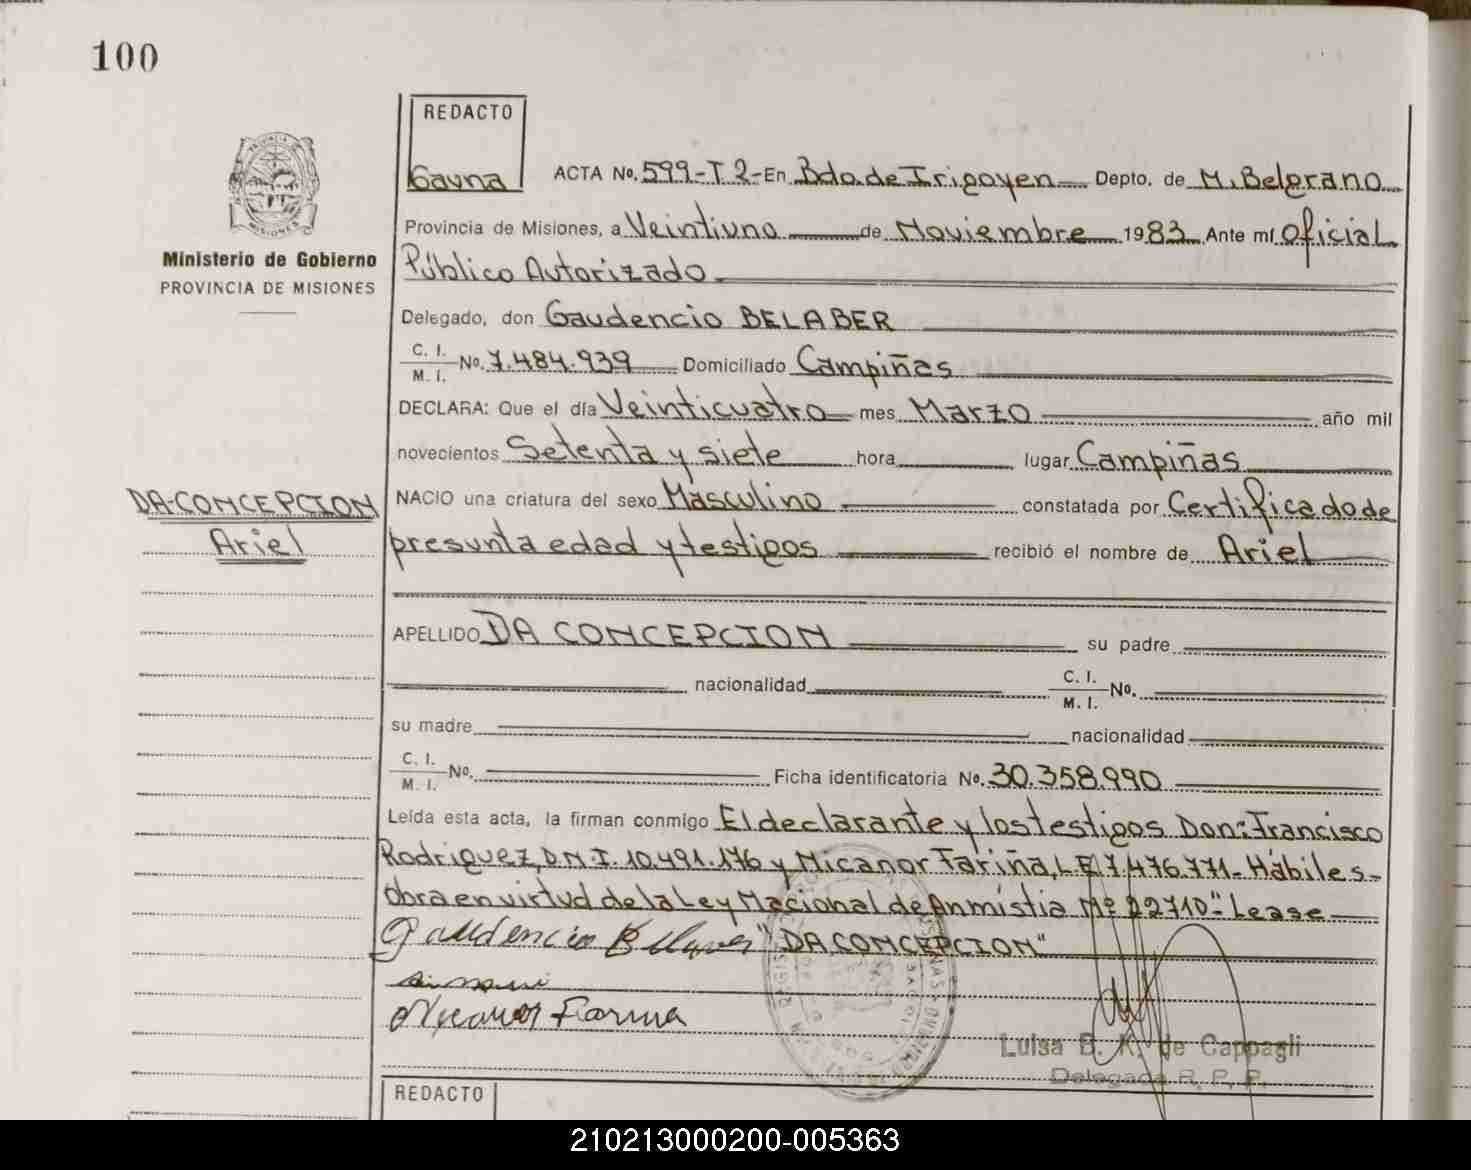 100
REDACTO
Gauna
ACTA No. 599-T 2- En Bdo. de Irigoyen Depto. de M. Belgrano
Ministerio de Gobierno
PROVINCIA DE MISIONES
Provincia de Misiones, a Veintiuno de Noviembre 1983 Ante mí Oficial
Público Autorizado
Delegado, don Gaudencio BELABER
C. I.
M. I. No. 7.484.939 Domiciliado Campiñas
DECLARA: Que el día Veinticuatro mes Marzo año mil
novecientos Setenta y siete hora lugar Campiñas
DA-CONCEPCION
Ariel
NACIO una criatura del sexo Masculino constatada por Certificado de
presunta edad y testigos recibió el nombre de Ariel
APELLIDO DA CONCEPCION su padre
nacionalidad C. I.
M. I. No.
su madre nacionalidad
C. I.
M. I. No. Ficha identificatoria No. 30.358.990
Leída esta acta, la firman conmigo El declarante y los testigos Don: Francisco
Rodriguez, D.N.I. 10.491.176 y Nicanor Fariña, L.E 7.476.771- Hábiles-
obra en virtud de la Ley Nacional de Anmistia Nº 22710-" Lease
"DA CONCEPCION"
Gaudencio
Nicanor Farina
Luisa B. K. de Cappagli
Delegada R. P. P.
REDACTO
210213000200-005363